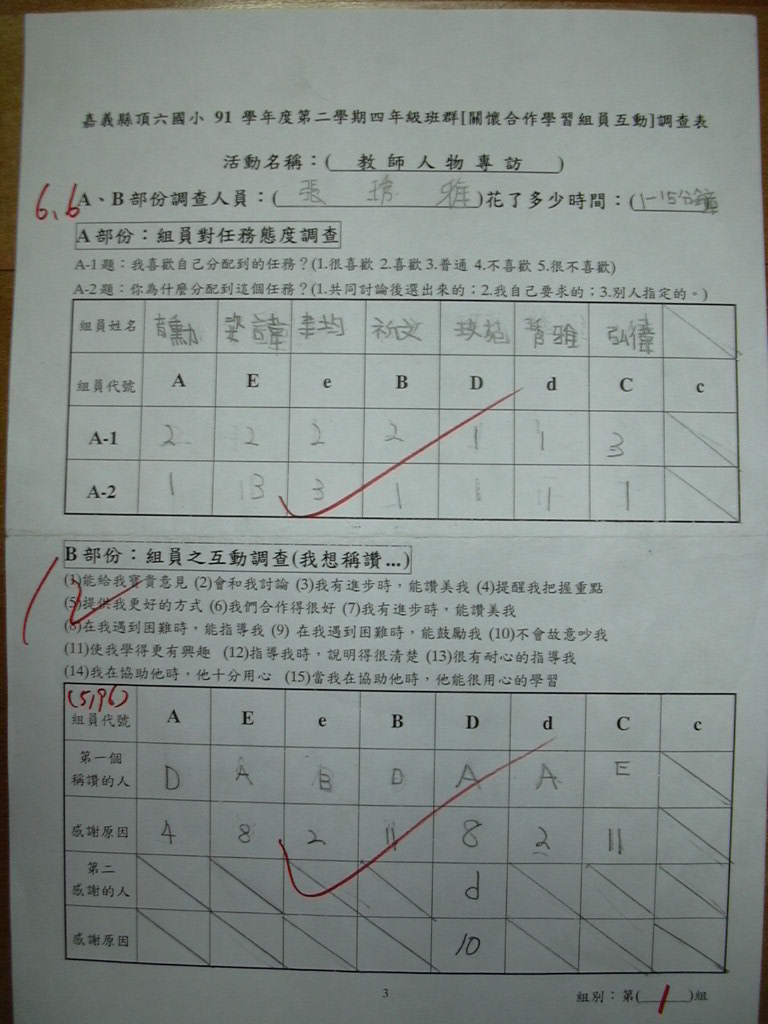 嘉義縣頂六國小 91 學年度第二學期四年級班群[關懷合作學習組員互動]調查表
活動名稱:( 教師人物專訪 )
6,6
A、B部份調查人員:( 張 雅 )花了多少時間:(1-15分鐘
A 部份:組員對任務態度調查
A-1 題:我喜歡自己分配到的任務?(1.很喜歡 2.喜歡 3.普通 4.不喜歡 5.很不喜歡)
A-2 題:你為什麼分配到這個任務?(1.共同討論後選出來的;2.我自己要求的;3.別人指定的。)
組員姓名 勳 諱 均 雅 弘偉
組員代號 A E e B D d C c
A-1 2 2 2 2 1 1 3
A-2 1 3 3 1 1 1 1
B 部份:組員之互動調查(我想稱讚...)
(1)能給我寶貴意見 (2)會和我討論 (3)我有進步時,能讚美我 (4)提醒我把握重點
(5)提供我更好的方式 (6)我們合作得很好 (7)我有進步時,能讚美我
(8)在我遇到困難時,能指導我 (9) 在我遇到困難時,能鼓勵我 (10)不會故意吵我
(11)使我學得更有興趣 (12)指導我時,說明得很清楚 (13)很有耐心的指導我
(14)我在協助他時,他十分用心 (15)當我在協助他時,他能很用心的學習
(5,96)
組員代號 A E e B D d C c
第一個
稱讚的人 D A B D A A E
感謝原因 4 8 2 11 8 2 11
第二
感謝的人 d
感謝原因 10
3
組別:第( 1 )組